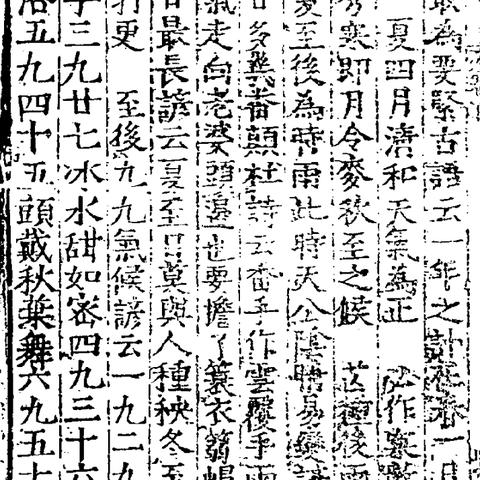 最為要緊古語云一年之計在春一日
夏四月清和天氣為正 必作寒
寒即月令麥秋至之候 芒種後雨
夏至後為時雨此時天公陰晴易變諺
多幾番顛杜詩云番手作雲覆手雨
氣走向老婆頭邊也要擔了簑衣箬帽
日最長諺云夏至日莫與人種秧冬至
打更 至後九九氣候諺云一九二九
三九廿七冰水甜如密四九三十六
五九四十五頭戴秋葉舞六九五十